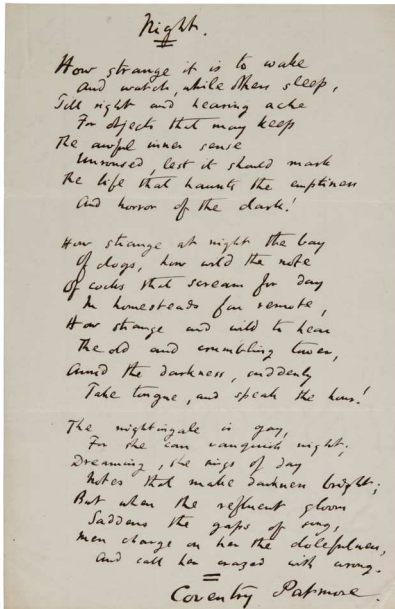 Night.
How strange it is to wake
And watch, while others sleep,
Till sight and hearing ache
For objects that may keep
The awful inner sense
Unroused, lest it should mark
The life that haunts the emptiness
And horror of the dark!
How strange at night the bay
Of dogs, how wild the note
Of cocks that scream for day
In homesteads far remote,
How strange and wild to hear
The old and crumbling tower,
Amid the darkness, suddenly
Take tongue, and speak the hour!
The nightingale is gay,
For she can vanquish night;
Dreaming, she sings of day
Notes that make darkness bright;
But when the refluent gloom
Saddens the gaps of song,
Men charge on her the dolefulness,
And call her crazed with wrong.
Coventry Patmore.